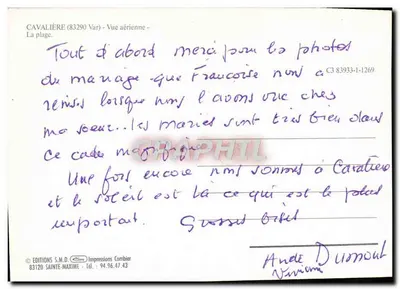 CAVALIÈRE (83290 Var) - Vue aérienne -
La plage.
Tout d'abord merci pour les photos
de mariage que Françoise nous a
C3 83933-1-1269
remis lorsque nous l'avons vue chez
ma soeur.. les mariés sont très bien dans
ce cadre magnifique
Une fois encore nous sommes à Cavalière
et le soleil est là ce qui est le plus
important. Grosses bises
© EDITIONS S.M.D. Impressions Combier
83120 SAINTE-MAXIME - Tél. 94.96.47.43
André Dumont
Viviane